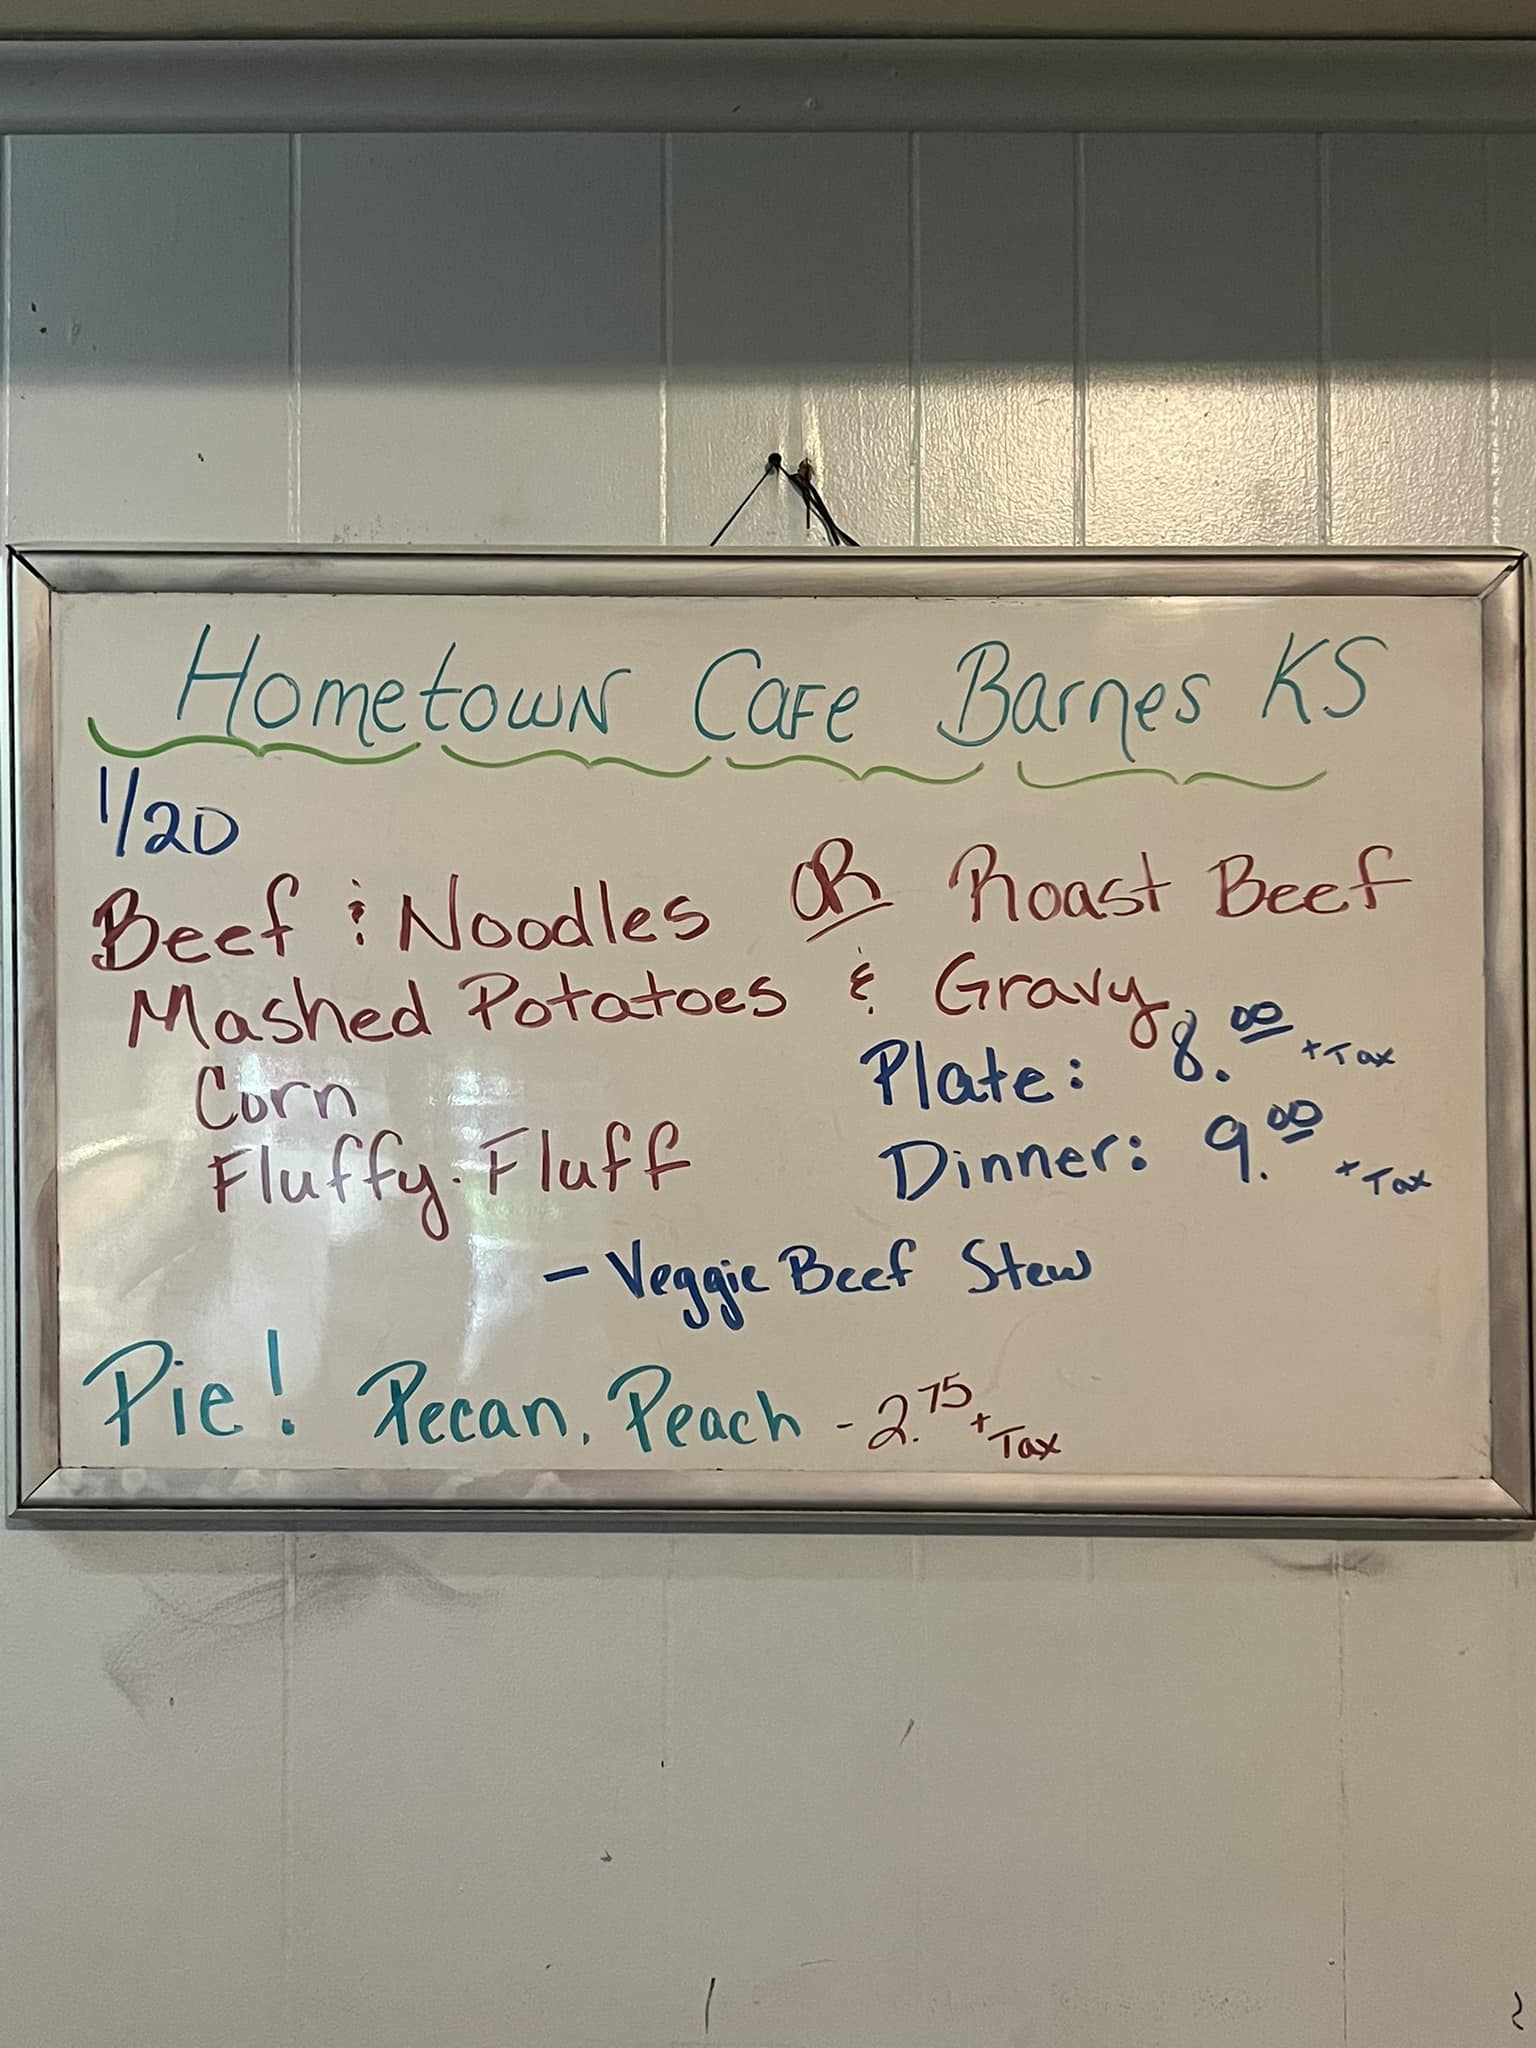 Hometown Cafe Barnes KS
1/20
Beef & Noodles OR Roast Beef
Mashed Potatoes & Gravy
Corn
Plate: 8.00 + Tax
Fluffy Fluff
Dinner: 9.00 + Tax
- Veggie Beef Stew
Pie! Pecan, Peach - 2.75 + Tax